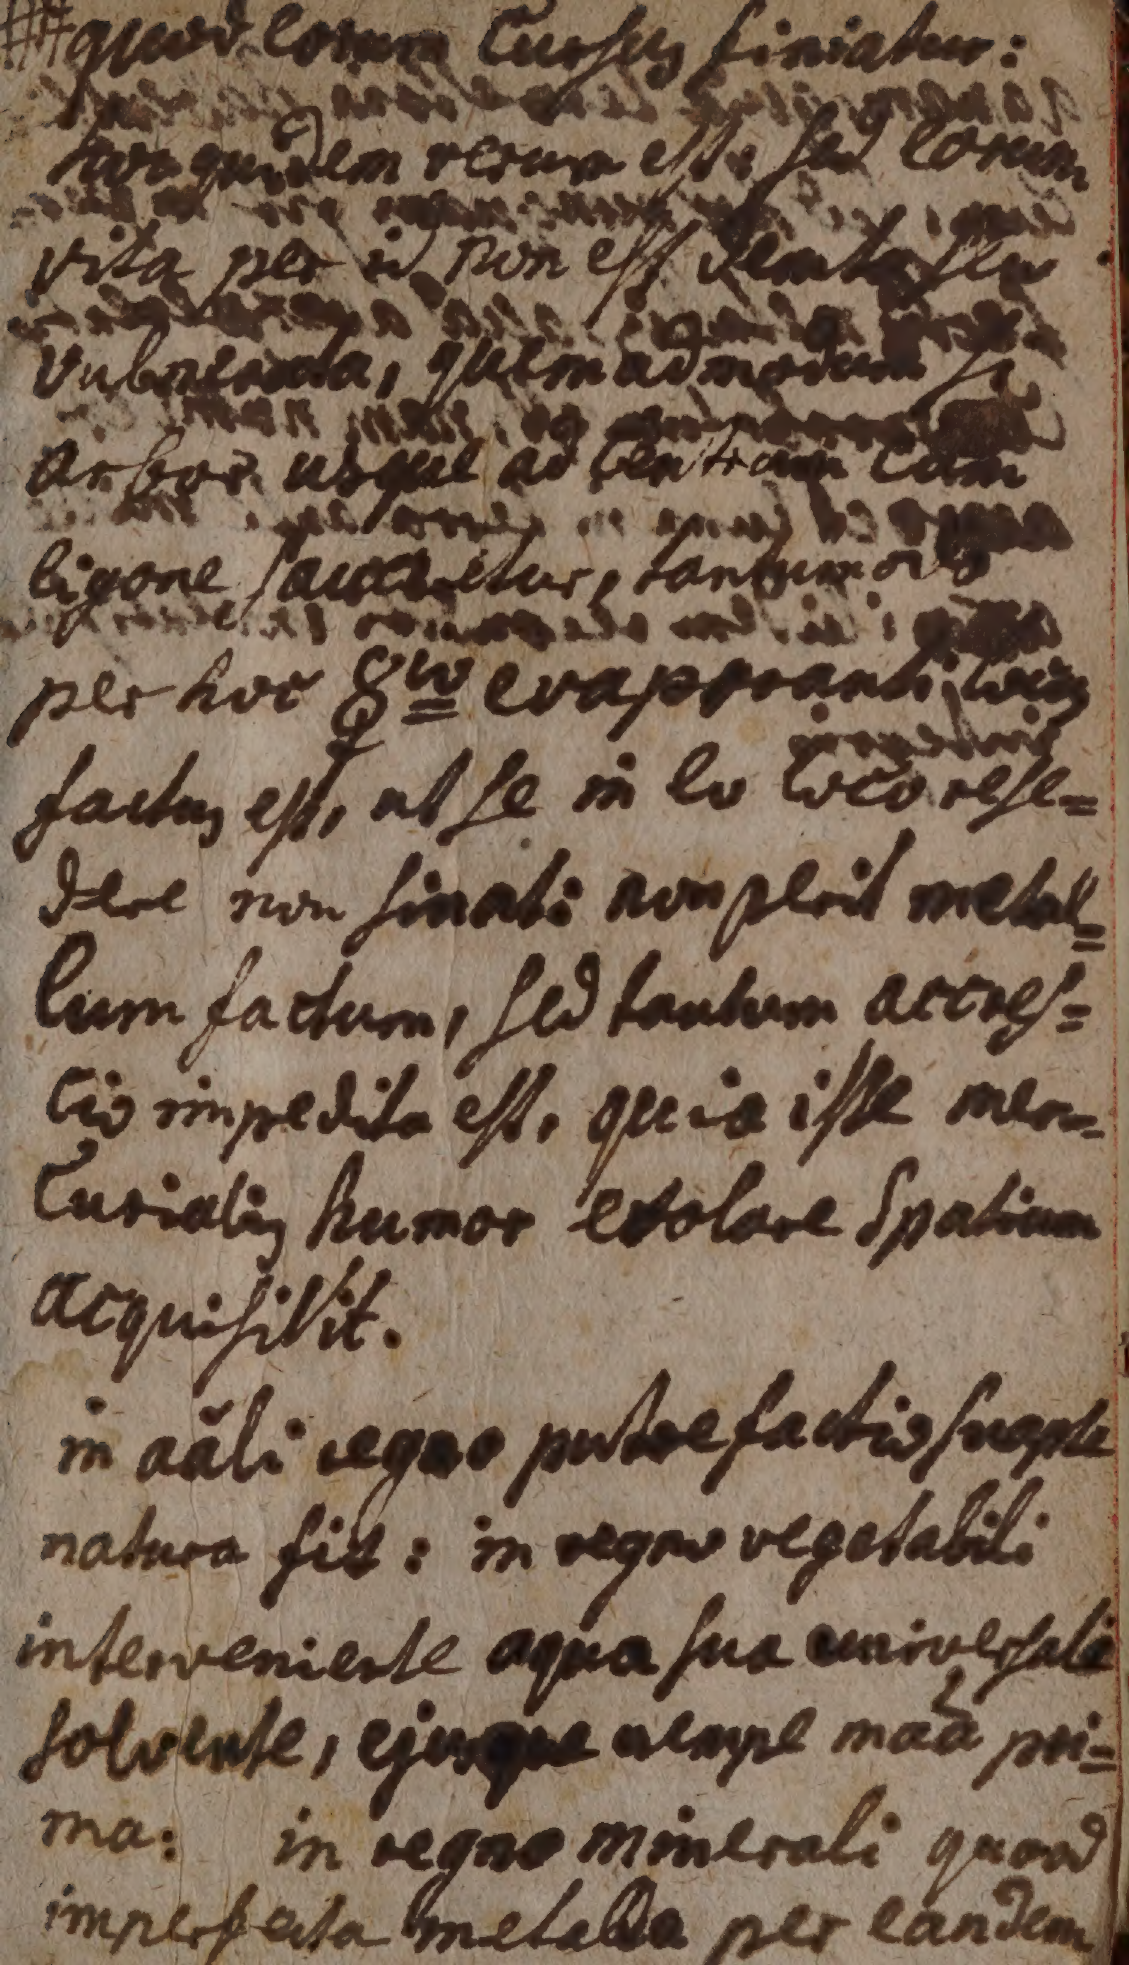 # quod eorum Cursus finiatur:
hoc quidem verum est. sed eorum
vita per id non est dempta seu
vulnerata, quemadmodum si
arbor usque ad Centrum Cum
ligone sauciretur, tantummodo
per hoc ☿io evaporandi locus
factus est, ut se in eo loco rese=
dere non sinat: non perit metal=
lum factum, sed tantum accres=
cio impedita est, quia iste mer=
Curialis humor evolare Spatium
acquisivit.
in aãli regno putrefactio suapte
natura fit: in regno vegetabili
interveniente aqua sua universali
solvente, ejusque nempe maã pri=
ma: in regno minerali quoad
imperfecta metalla per eandem